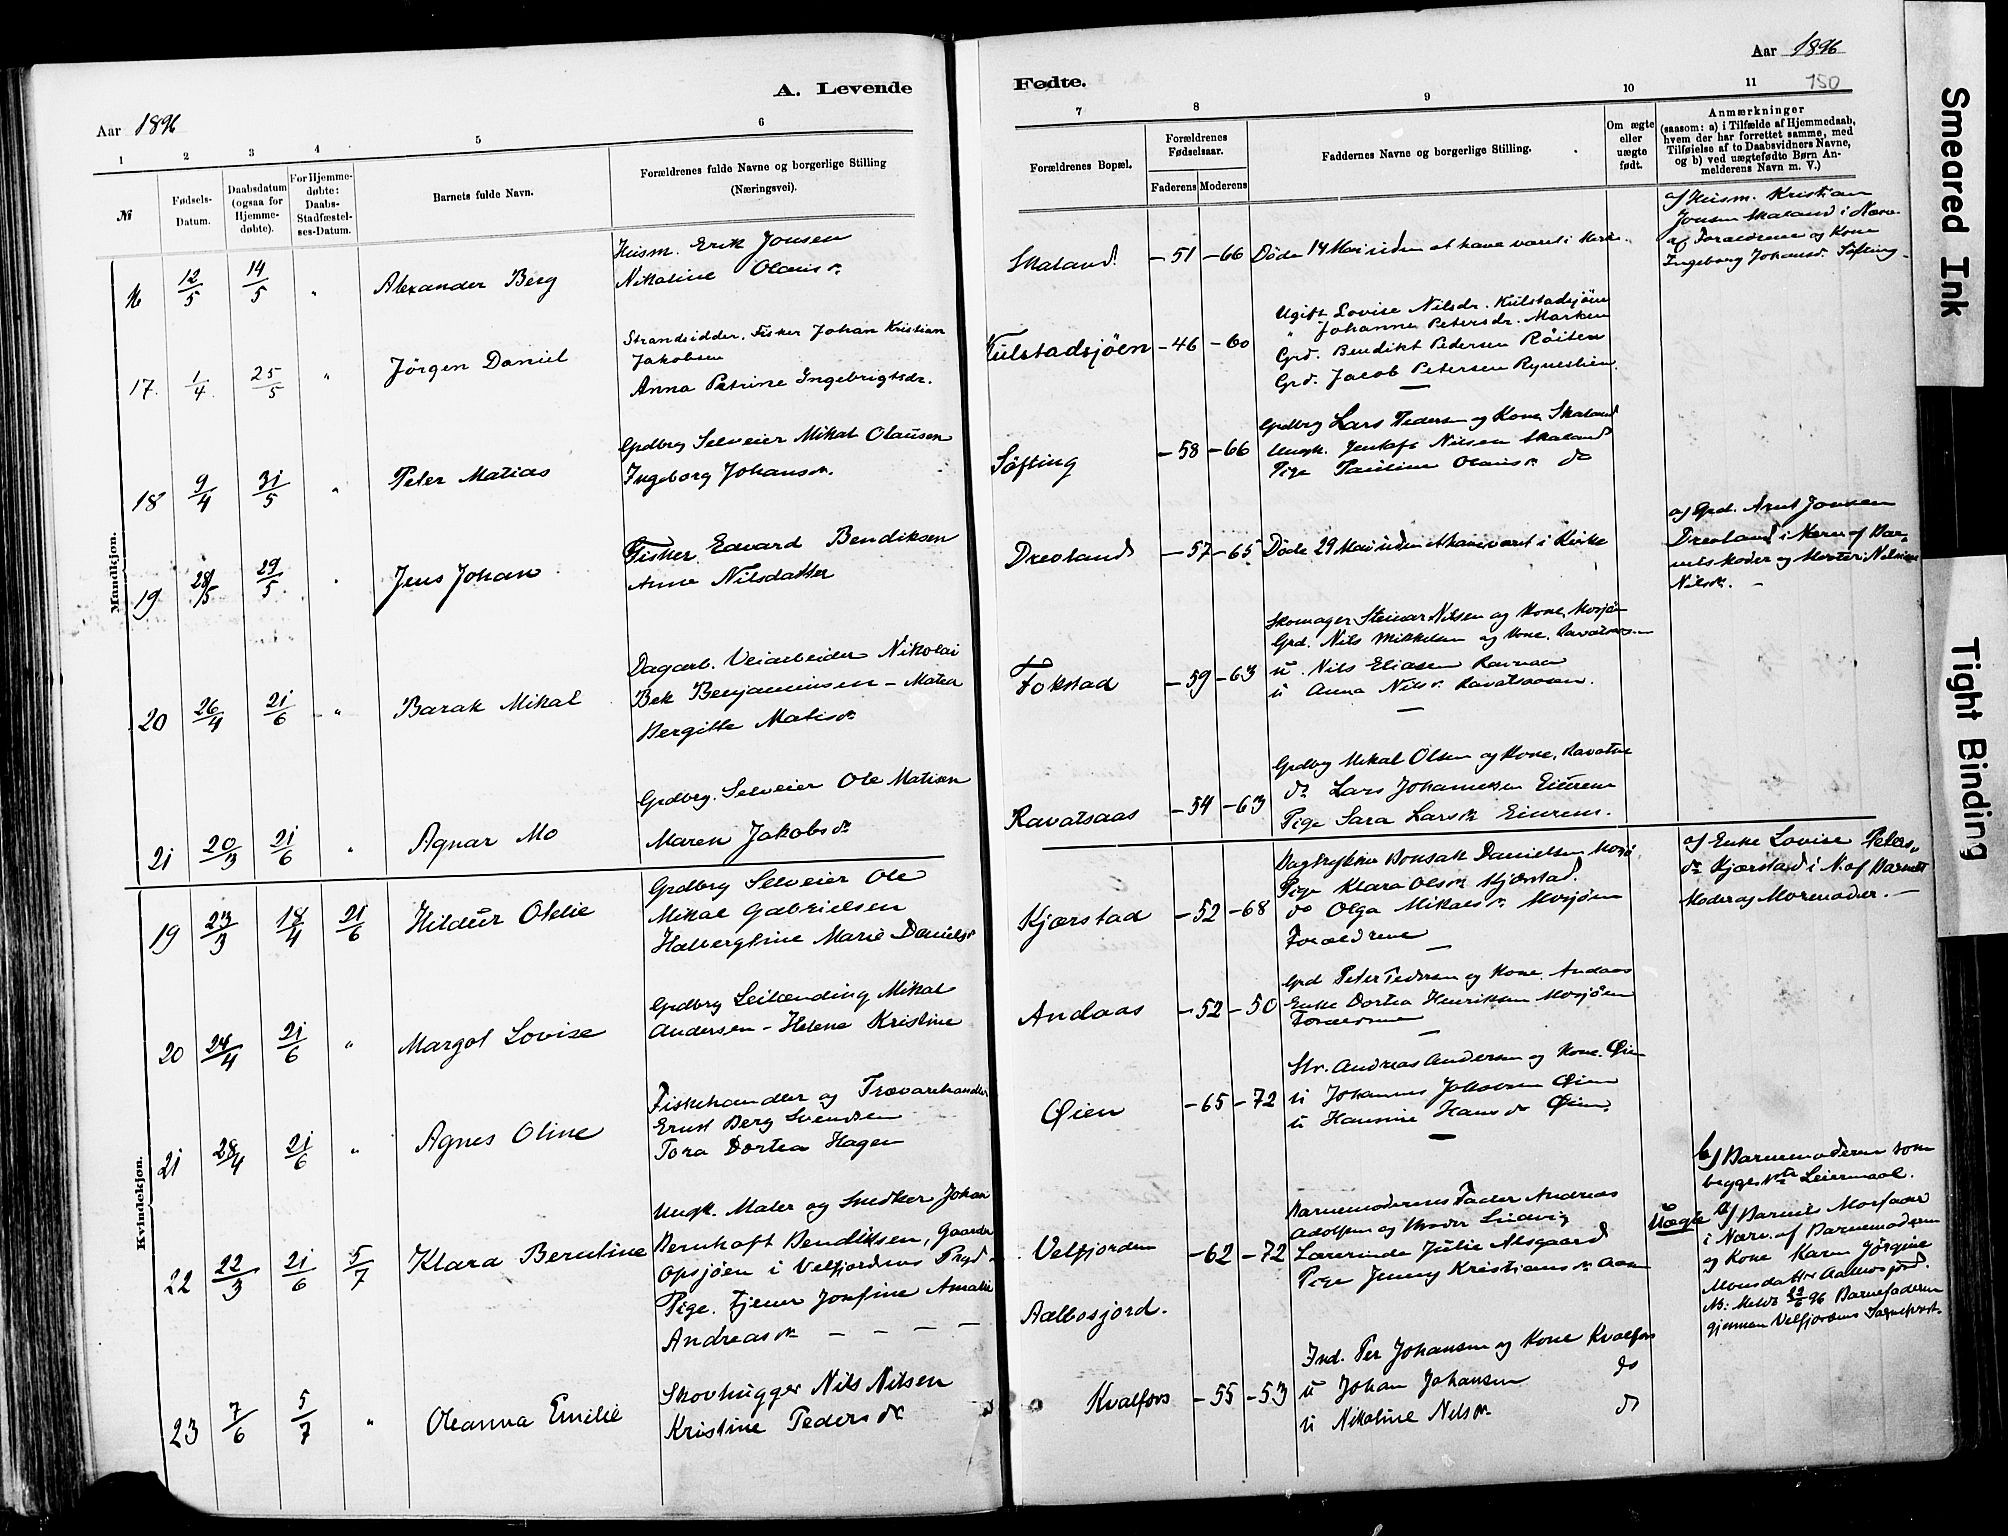 A. Levende
Fødte.
Aar 1896
Aar 1896
150
1 2 3 4 5 6
7 8 9 10 11
№
Fødsels-
Datum.
Daabsdatum
(ogsaa for
Hjemme-
døbte).
For Hjemme-
døbte:
Daabs-
Stadfæstel-
ses-Datum.
Barnets fulde Navn.
Forældrenes fulde Navne og borgerlige Stilling
(Næringsvei).
Forældrenes Bopæl.
Forældrenes
Fødselsaar.
Faderens Moderens
Faddernes Navne og borgerlige Stilling.
Om ægte
eller
uægte
født.
Anmærkninger
(saasom: a) i Tilfælde af Hjemmedaab,
hvem der har forrettet samme, med
Tilføielse af to Daabsvidners Navne,
og b) ved uægtefødte Børn An-
melderens Navn m. V.)
Mandkjøn.
16 12/5 14/5 " Alexander Berg
Husm. Erik Jonsen
Nikoline Olausdr.
Skaland. -51 -66 Døde 14 Mai uden at have været i Kirke.
af Husm. Kristian
Jonsen Skaland i Nærv.
af Forældrene og Kone
Ingeborg Johansd. Søfting
17. 1/4 25/5 " Jørgen Daniel
Strandsidder, Fisker Johan Kristian
Jakobsen
Anna Petrine Ingebrigtsdr.
Kulstadsjøen -46 -60
Ugift Lovise Nilsdr. Kulstadsjøen
" Johanna Petersdr. Marken
Grd. Bendikt Pedersen Røiten
Grd. Jacob Petersen Ryneslien.
18 9/4 31/5 " Peter Matias
Grdbrg Selveier Mikal Olausen
Ingeborg Johansdr.
Søfting -58 -66
Grdbrg Lars Pedersen og Kone Skaland
Ungk. Jentoft Nilsen Skaland
Pige Pauline Olausdr. do
19 28/5 29/5 " Jens Johan
Fisker Edvard Bendiksen
Anne Nilsdatter
Drevland -57 -65 Døde 29 Mai uden at have været i Kirke
af Grd. Arnt Jonsen
Drevland i Nærv. af Bar-
nets Moder og Nilsdr.
20 26/4 21/6 " Barak Mikal
Dagarb. Veiarbeider Nikolai
Bek Benjaminsen - Matea
Bergitte Matisdr
Fokstad -59 -63
Skomager Steinar Nilsen og Kone, Mosjøen
Grd. Nils Mikkelsen og Kone, Ravatsaas
U. Nils Eliasen Ravnaa
U Anna Nilsdr. Ravatsaasen.
21 20/3 21/6 " Agnar Mo
Grdbrg. Selveier Ole Matisen
Maren Jakobsdr
Ravatsaas -54 -63
Grdbrg Mikal Olsen og Kone, Ravatsas
do Lars Johannesen Eiterem
Pige Sara Larsdr Eiterem.
Kvindekjøn.
19 23/3 18/4 21/6 Hildur Otelie
Grdbrg Selveier Ole
Mikal Gabrielsen
Halvergtine Marie Danielsdr
Kjærstad -52 -68
Danielsen Mosjø
Pige Klara Olsdr Kjærstad.
do Olga Mikalsdr Mosjøen
Forældrene
af Enke Lovise Peters-
dr Kjærstad i N. af Barnets
Moder og Mormoder. -
20 24/4 21/6 " Margot Lovise
Grdbrg Leilænding Mikal
Andersen - Helene Kristine
Andaas -52 -50
Grd Peter Pedersen og Kone, Andaas
Enke Dortea Henriksen Mosjøen
Forældrene
21 28/4 21/6 " Agnes Oline
Fiskehandler og Trævarehandler
Ernst Berg Svendsen
Tora Dortea Hagen
Øien -65 -72
Str. Andreas Andersen og Kone. Øien
U Johannes Jakobsen Øien
U Hansine Hansdr Øien.
22 22/3 21/6 5/7 Klara Berntine
Ungk. Maler og Snedker Johan
Bernhoft Bendiksen, Gaarden
Opsjøen i Velfjordens Prgd -
Pige. Tjener Josefine Amalie
Andreasdr - - - -
Velfjorden -62 -72
Aalbosjord.
Barnemoderens Fader Andreas
Adolfsen og Broder Ludvig
Lærerinde Julie Alsgaard
Pige Jenny Kristiansdr Aan
Uægte
b) Barnemoderen som
begges 1ste Leiermaal.
a) Barnets Morfader
i Nærv. af Barnemoderen
og Kone Karen Jørgine
Monsdatter Aalbosjord.
NB: Meldt 23/6 96 Barnefaderen
gjennem Velfjordens Sognepræst.
23 7/6 5/7 " Oleanna Emilie
Skovhugger Nils Nilsen
Kristine Pedersdr
Kvalfors -55 -53
Ind. Per Johansen og Kone Kvalfors
U Johan Johansen do
U Nikoline Nilsdr. do
Smeared Ink
Tight Binding